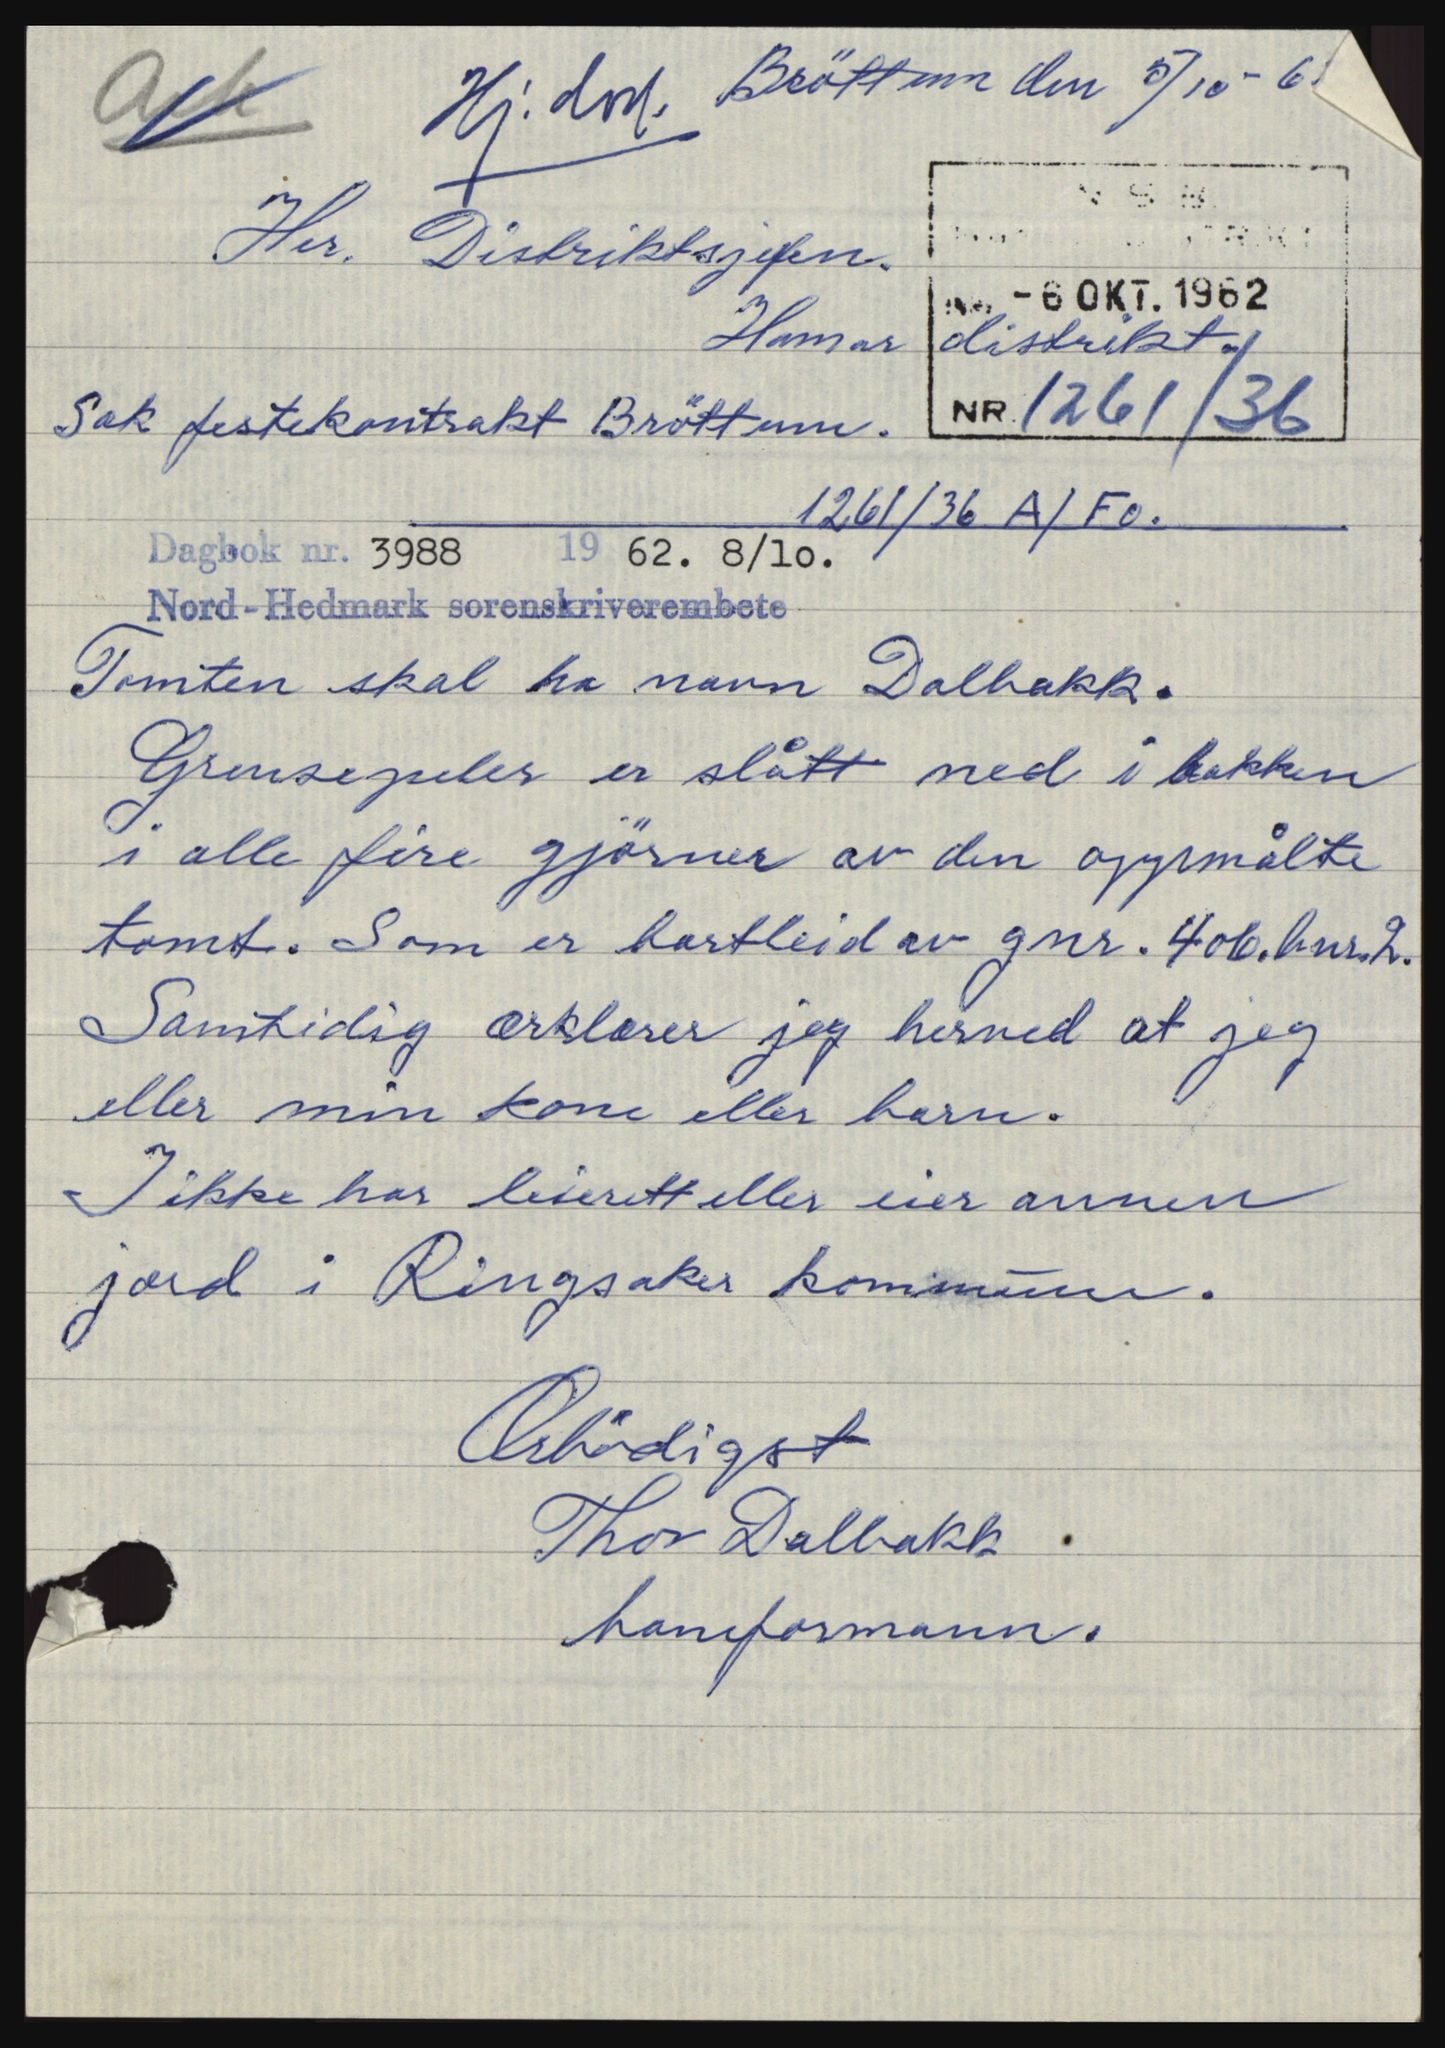 Hj. dok. Bröttum den 5/10-6
Her. Distriktsjefen.
N S B
- 6 OKT. 1962
Hamar distrikt.
NR. 1261/36
Sak festekontrakt Bröttum.
1261/36 A/Fo.
Dagbok nr. 3988 19 62. 8/10.
Nord-Hedmark sorenskriverembete
Tomten skal ha navn Dalbakk.
Grensepeler er slått ned i bakken
i alle fire gjörner av den oppmålte
tomt. Som er bortleid av gnr. 406. bnr. 2.
Samtidig ærklærer jeg herved at jeg
eller min kone eller barn.
I ikke har leierett eller eier annen
jord i Ringsaker kommune.
Ærbödigst
Thor Dalbakk
baneformann.